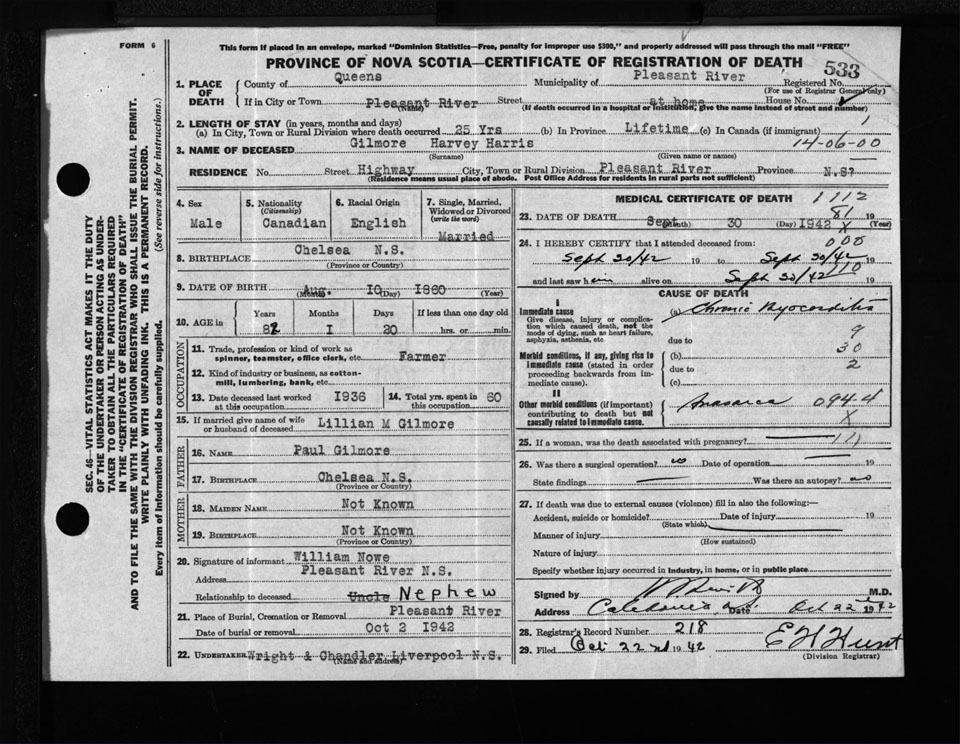 FORM 6
This form if placed in an envelope, marked "Dominion Statistics—Free, penalty for improper use $300," and properly addressed will pass through the mail "FREE"
PROVINCE OF NOVA SCOTIA—CERTIFICATE OF REGISTRATION OF DEATH
533
1. PLACE OF DEATH County of Queens Municipality of Pleasant River Registered No.
(For use of Registrar General only)
If in City or Town Pleasant River Street at home House No.
(Name) (If death occurred in a hospital or institution, give the name instead of street and number)
2. LENGTH OF STAY (in years, months and days)
(a) In City, Town or Rural Division where death occurred 25 Yrs (b) In Province Lifetime (c) In Canada (if immigrant)
3. NAME OF DECEASED Gilmore Harvey Harris 14-06-00
(Surname) (Given name or names)
RESIDENCE No. Street Highway City, Town or Rural Division Pleasant River Province N.S?
(Residence means usual place of abode. Post Office Address for residents in rural parts not sufficient)
4. Sex Male
5. Nationality (Citizenship) Canadian
6. Racial Origin English
7. Single, Married, Widowed or Divorced (write the word) Married
8. BIRTHPLACE Chelsea N.S.
(Province or Country)
9. DATE OF BIRTH Aug. 10 1860
(Month) (Day) (Year)
10. AGE in Years Months Days If less than one day old
82 I 20 hrs. or min.
OCCUPATION
11. Trade, profession or kind of work as spinner, teamster, office clerk, etc. Farmer
12. Kind of industry or business, as cotton-mill, lumbering, bank, etc.
13. Date deceased last worked at this occupation I936
14. Total yrs. spent in this occupation 60
15. If married give name of wife or husband of deceased Lillian M Gilmore
FATHER
16. NAME Paul Gilmore
17. BIRTHPLACE Chelsea N.S.
(Province or Country)
MOTHER
18. MAIDEN NAME Not Known
19. BIRTHPLACE Not Known
(Province or Country)
20. Signature of informant William Nowe
Address Pleasant River N.S.
Relationship to deceased Uncle Nephew
21. Place of Burial, Cremation or Removal Pleasant River
Date of burial or removal Oct 2 1942
22. UNDERTAKER Wright & Chandler Liverpool N.S.
(Name and address)
MEDICAL CERTIFICATE OF DEATH
1112
81
23. DATE OF DEATH Sept 30 1942 19
(Month) (Day) (Year)
X
24. I HEREBY CERTIFY that I attended deceased from:
Sept 30/42 19 to Sept 30/42 19
and last saw him alive on Sept 30/42 19
CAUSE OF DEATH
I
Immediate cause
Give disease, injury or complication which caused death, not the mode of dying, such as heart failure, asphyxia, asthenia, etc
(a) Chronic Myocarditis
9
due to
30
Morbid conditions, if any, giving rise to immediate cause (stated in order proceeding backwards from immediate cause).
(b)
2
due to
(c)
II
Other morbid conditions (if important) contributing to death but not causally related to immediate cause.
Anasarca 094.4
X
25. If a woman, was the death associated with pregnancy?
26. Was there a surgical operation? no Date of operation 19
State findings Was there an autopsy? no
27. If death was due to external causes (violence) fill in also the following:—
Accident, suicide or homicide? Date of injury 19
(State which)
Manner of injury
(How sustained)
Nature of injury
Specify whether injury occurred in industry, in home, or in public place
Signed by M.D.
Address Caledonia Date Oct 22 1942
28. Registrar's Record Number 218
29. Filed Oct 22nd 1942 E H Hunt
(Division Registrar)
SEC. 46—VITAL STATISTICS ACT MAKES IT THE DUTY
OF THE UNDERTAKER OR PERSON ACTING AS UNDER-
TAKER TO OBTAIN ALL THE PARTICULARS REQUIRED
IN THE "CERTIFICATE OF REGISTRATION OF DEATH"
AND TO FILE THE SAME WITH THE DIVISION REGISTRAR WHO SHALL ISSUE THE BURIAL PERMIT.
WRITE PLAINLY WITH UNFADING INK. THIS IS A PERMANENT RECORD.
Every item of Information should be carefully supplied. (See reverse side for instructions.)